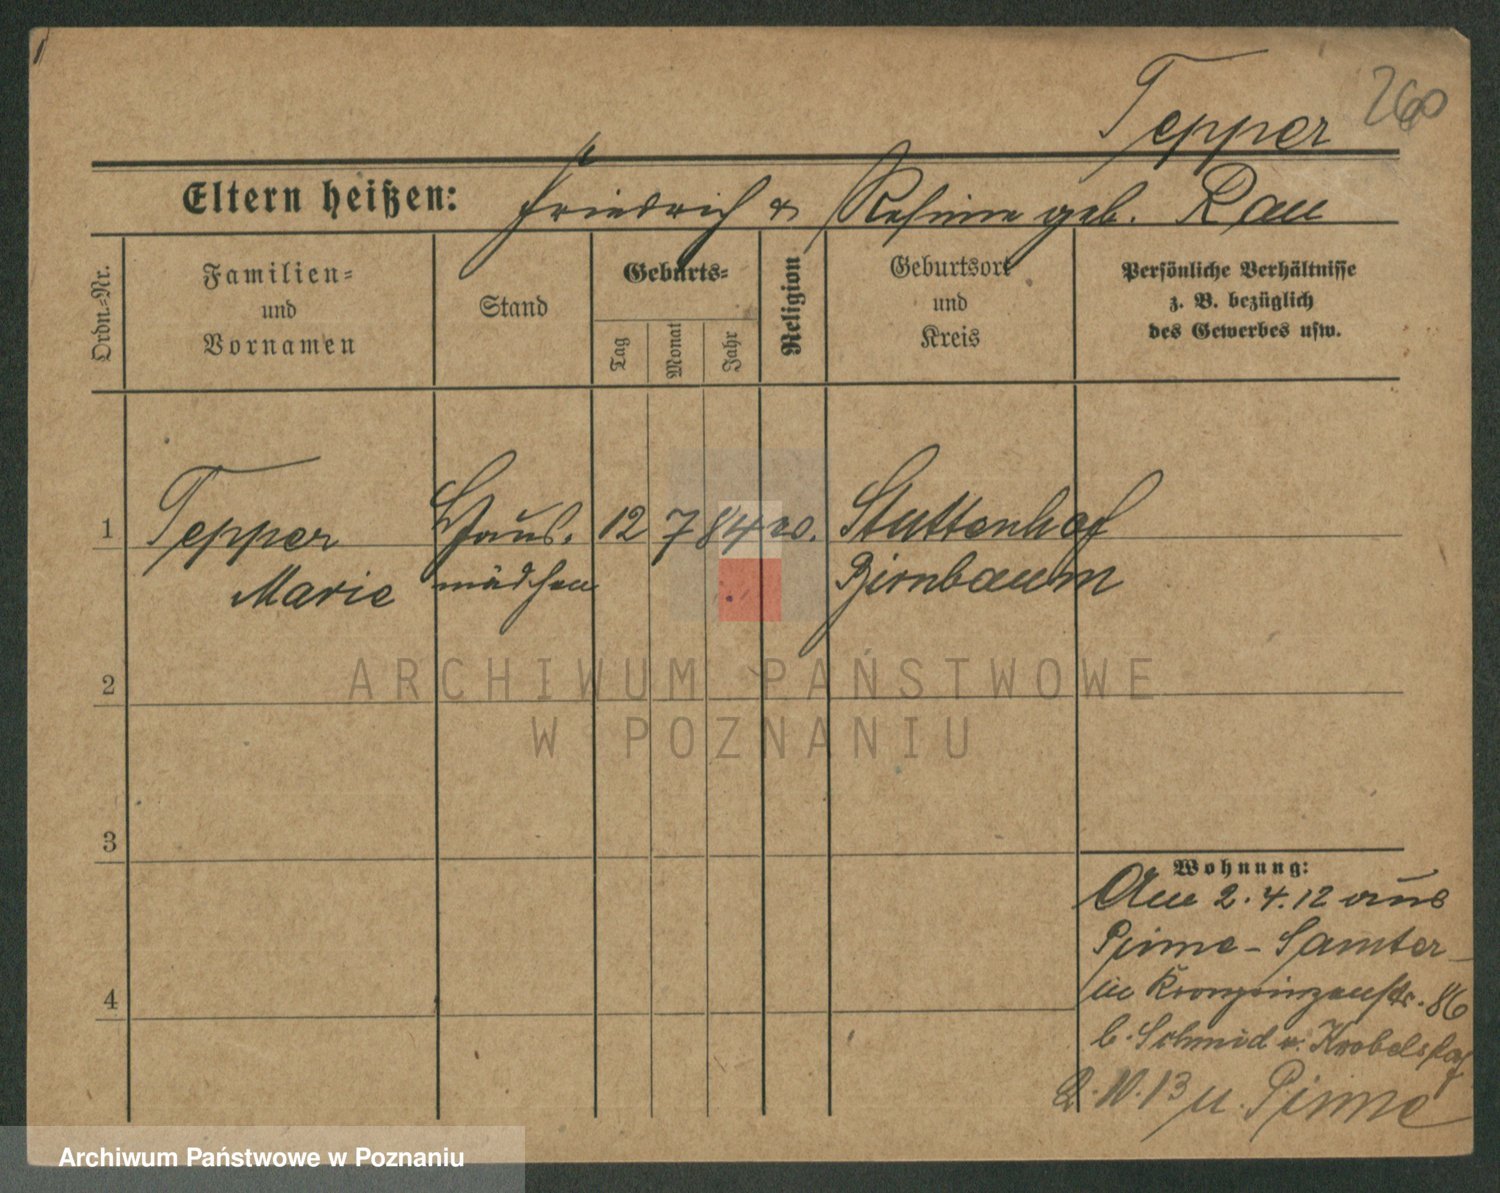 Tepper 260
Eltern heißen: Friedrich & geb. Rau
Ordn.-Nr.
Familien-
und
Vornamen
Stand
Geburts-
Tag
Monat
Jahr
Religion
Geburtsort
und
Kreis
Persönliche Verhältnisse
z. B. bezüglich
des Gewerbes usw.
1 Tepper Haus- 12 7 84 ev. Stuttenhof
Marie mädchen Birnbaum
2
3
4
Wohnung:
Am 2.4.12 aus
Pinne - Samter
in Kronprinzenstr. 86
b. Schmid v. Knobelsdorf
2.10.13 u. Pinne
ARCHIWUM PAŃSTWOWE
W POZNANIU
Archiwum Państwowe w Poznaniu